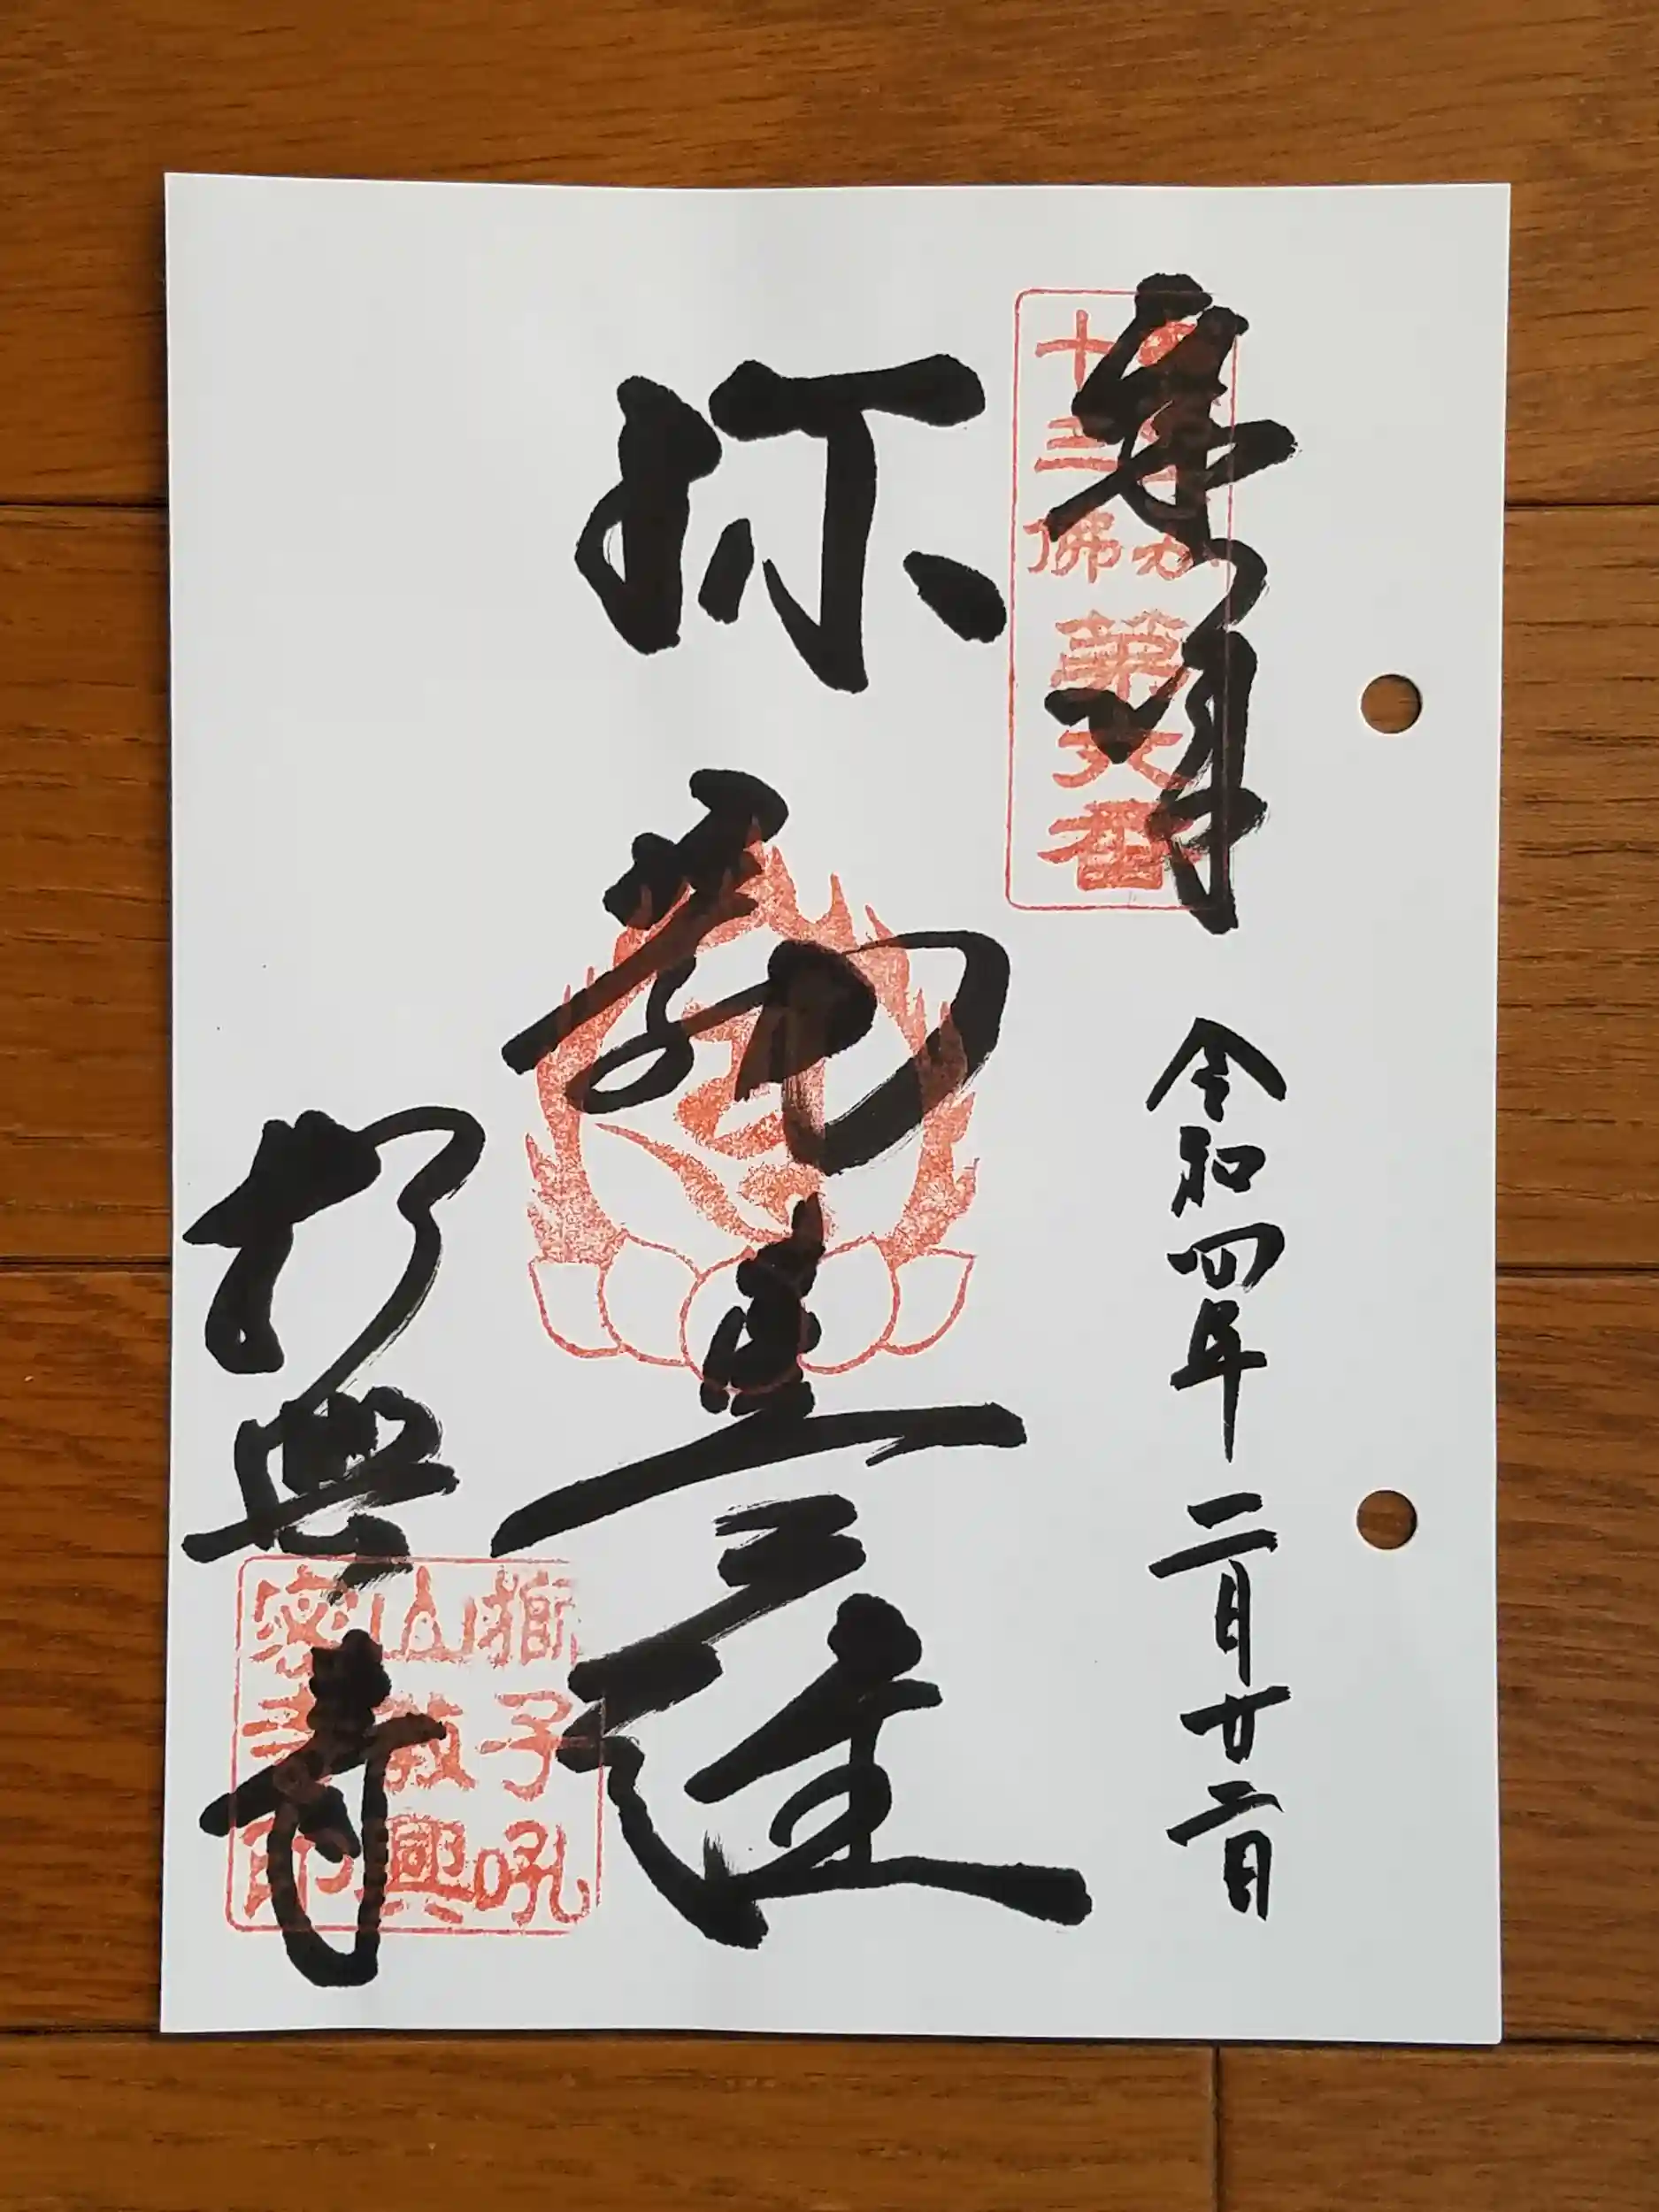 奉拝
十三佛
第六番
令和四年二月廿二日
弥勒菩薩
教興寺
獅子吼
山教興
密寺印